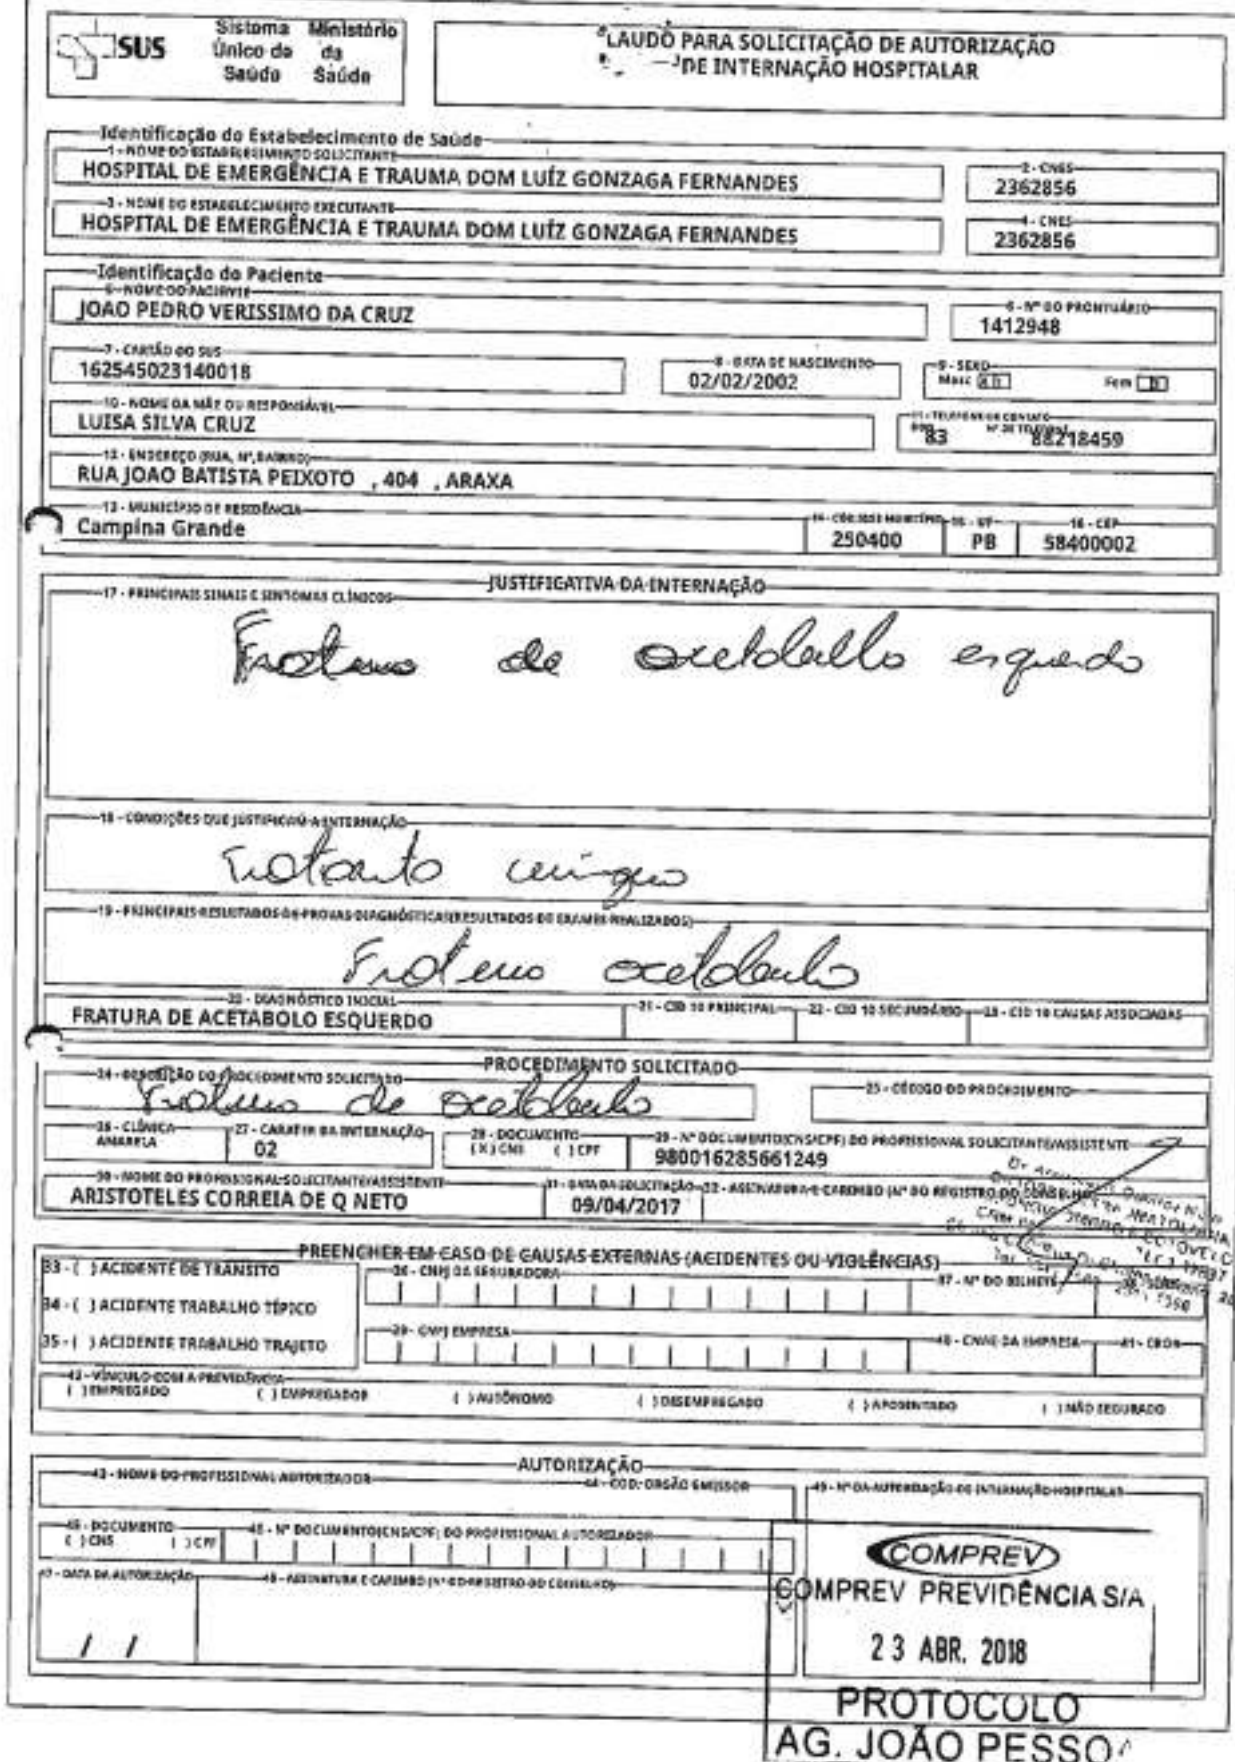 SUS
Sistema Único de Saúde
Ministério da Saúde
LAUDO PARA SOLICITAÇÃO DE AUTORIZAÇÃO
DE INTERNAÇÃO HOSPITALAR
Identificação do Estabelecimento de Saúde
1 - NOME DO ESTABELECIMENTO SOLICITANTE
HOSPITAL DE EMERGÊNCIA E TRAUMA DOM LUÍZ GONZAGA FERNANDES
2 - CNES
2362856
3 - NOME DO ESTABELECIMENTO EXECUTANTE
HOSPITAL DE EMERGÊNCIA E TRAUMA DOM LUÍZ GONZAGA FERNANDES
4 - CNES
2362856
Identificação do Paciente
5 - NOME DO PACIENTE
JOAO PEDRO VERISSIMO DA CRUZ
6 - Nº DO PRONTUÁRIO
1412948
7 - CARTÃO DO SUS
162545023140018
8 - DATA DE NASCIMENTO
02/02/2002
9 - SEXO
Masc
Fem
10 - NOME DA MÃE OU RESPONSÁVEL
LUISA SILVA CRUZ
11 - TELEFONE DE CONTATO
DDD Nº DE TELEFONE
83 88218459
12 - ENDEREÇO (RUA, Nº, BAIRRO)
RUA JOAO BATISTA PEIXOTO , 404 , ARAXA
13 - MUNICÍPIO DE RESIDÊNCIA
Campina Grande
250400
15 - UF
PB
16 - CEP
58400002
JUSTIFICATIVA DA INTERNAÇÃO
17 - PRINCIPAIS SINAIS E SINTOMAS CLÍNICOS
de esquerdo
18 - CONDIÇÕES QUE JUSTIFICAM A INTERNAÇÃO
19 - PRINCIPAIS RESULTADOS DE PROVAS DIAGNÓSTICAS (RESULTADOS DE EXAMES REALIZADOS)
20 - DIAGNÓSTICO INICIAL
FRATURA DE ACETABOLO ESQUERDO
21 - CID 10 PRINCIPAL
22 - CID 10 SECUNDÁRIO
23 - CID 10 CAUSAS ASSOCIADAS
PROCEDIMENTO SOLICITADO
24 - DESCRIÇÃO DO PROCEDIMENTO SOLICITADO
de
25 - CÓDIGO DO PROCEDIMENTO
26 - CLÍNICA
AMARELA
27 - CARATER DA INTERNAÇÃO
02
28 - DOCUMENTO
(X) CNS ( ) CPF
29 - Nº DOCUMENTO(CNS/CPF) DO PROFISSIONAL SOLICITANTE/ASSISTENTE
980016285661249
30 - NOME DO PROFISSIONAL SOLICITANTE/ASSISTENTE
ARISTOTELES CORREIA DE Q NETO
31 - DATA DA SOLICITAÇÃO
09/04/2017
32 - ASSINATURA E CARIMBO (Nº DO REGISTRO DO CONSELHO)
PREENCHER EM CASO DE CAUSAS EXTERNAS (ACIDENTES OU VIOLÊNCIAS)
33 - ( ) ACIDENTE DE TRANSITO
34 - ( ) ACIDENTE TRABALHO TÍPICO
35 - ( ) ACIDENTE TRABALHO TRAJETO
36 - CNPJ DA SEGURADORA
37 - Nº DO BILHETE
39 - CNPJ EMPRESA
40 - CNAE DA EMPRESA
41 - CBOR
42 - VÍNCULO COM A PREVIDÊNCIA
( ) EMPREGADO ( ) EMPREGADOR ( ) AUTÔNOMO ( ) DESEMPREGADO ( ) APOSENTADO ( ) NÃO SEGURADO
AUTORIZAÇÃO
43 - NOME DO PROFISSIONAL AUTORIZADOR
44 - COD. ORGÃO EMISSOR
49 - Nº DA AUTORIZAÇÃO DE INTERNAÇÃO HOSPITALAR
45 - DOCUMENTO
( ) CNS ( ) CPF
46 - Nº DOCUMENTO(CNS/CPF) DO PROFISSIONAL AUTORIZADOR
47 - DATA DA AUTORIZAÇÃO
/ /
48 - ASSINATURA E CARIMBO (Nº DO REGISTRO DO CONSELHO)
COMPREV
COMPREV PREVIDÊNCIA S/A
23 ABR. 2018
PROTOCOLO
AG. JOÃO PESSOA